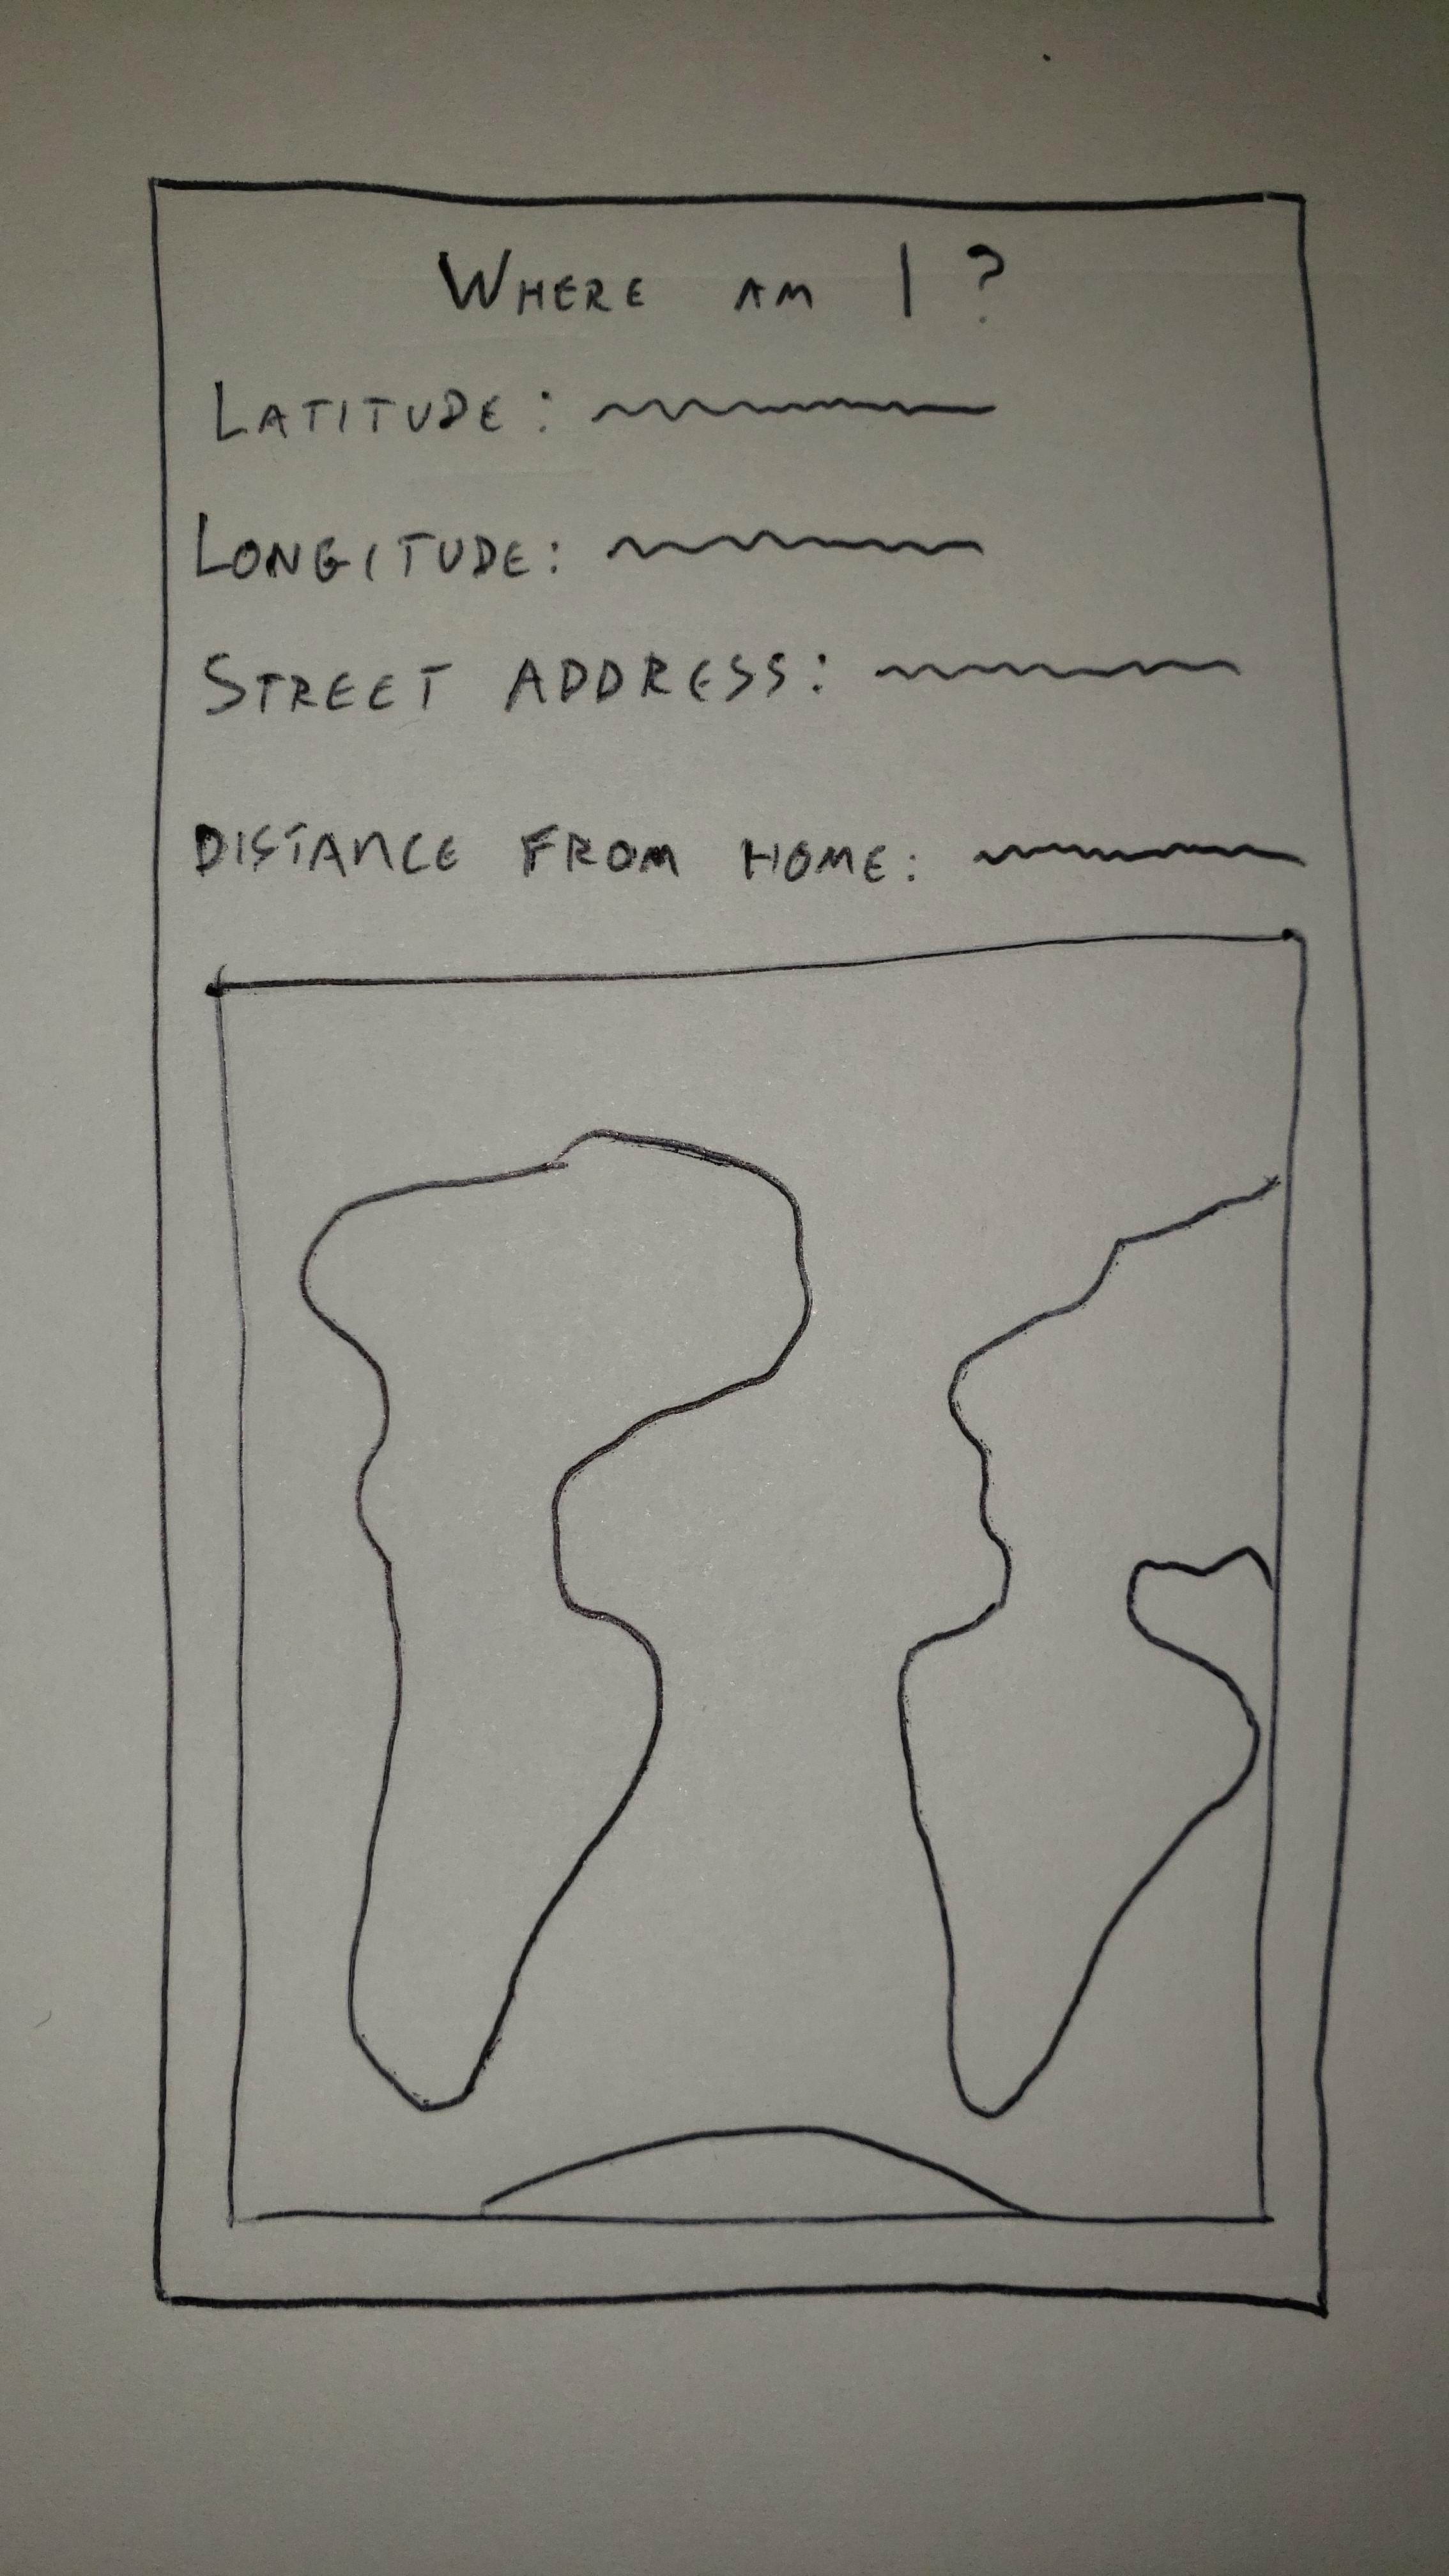 WHERE AM I?
LATITUDE:
LONGITUDE:
STREET ADDRESS:
DISTANCE FROM HOME: